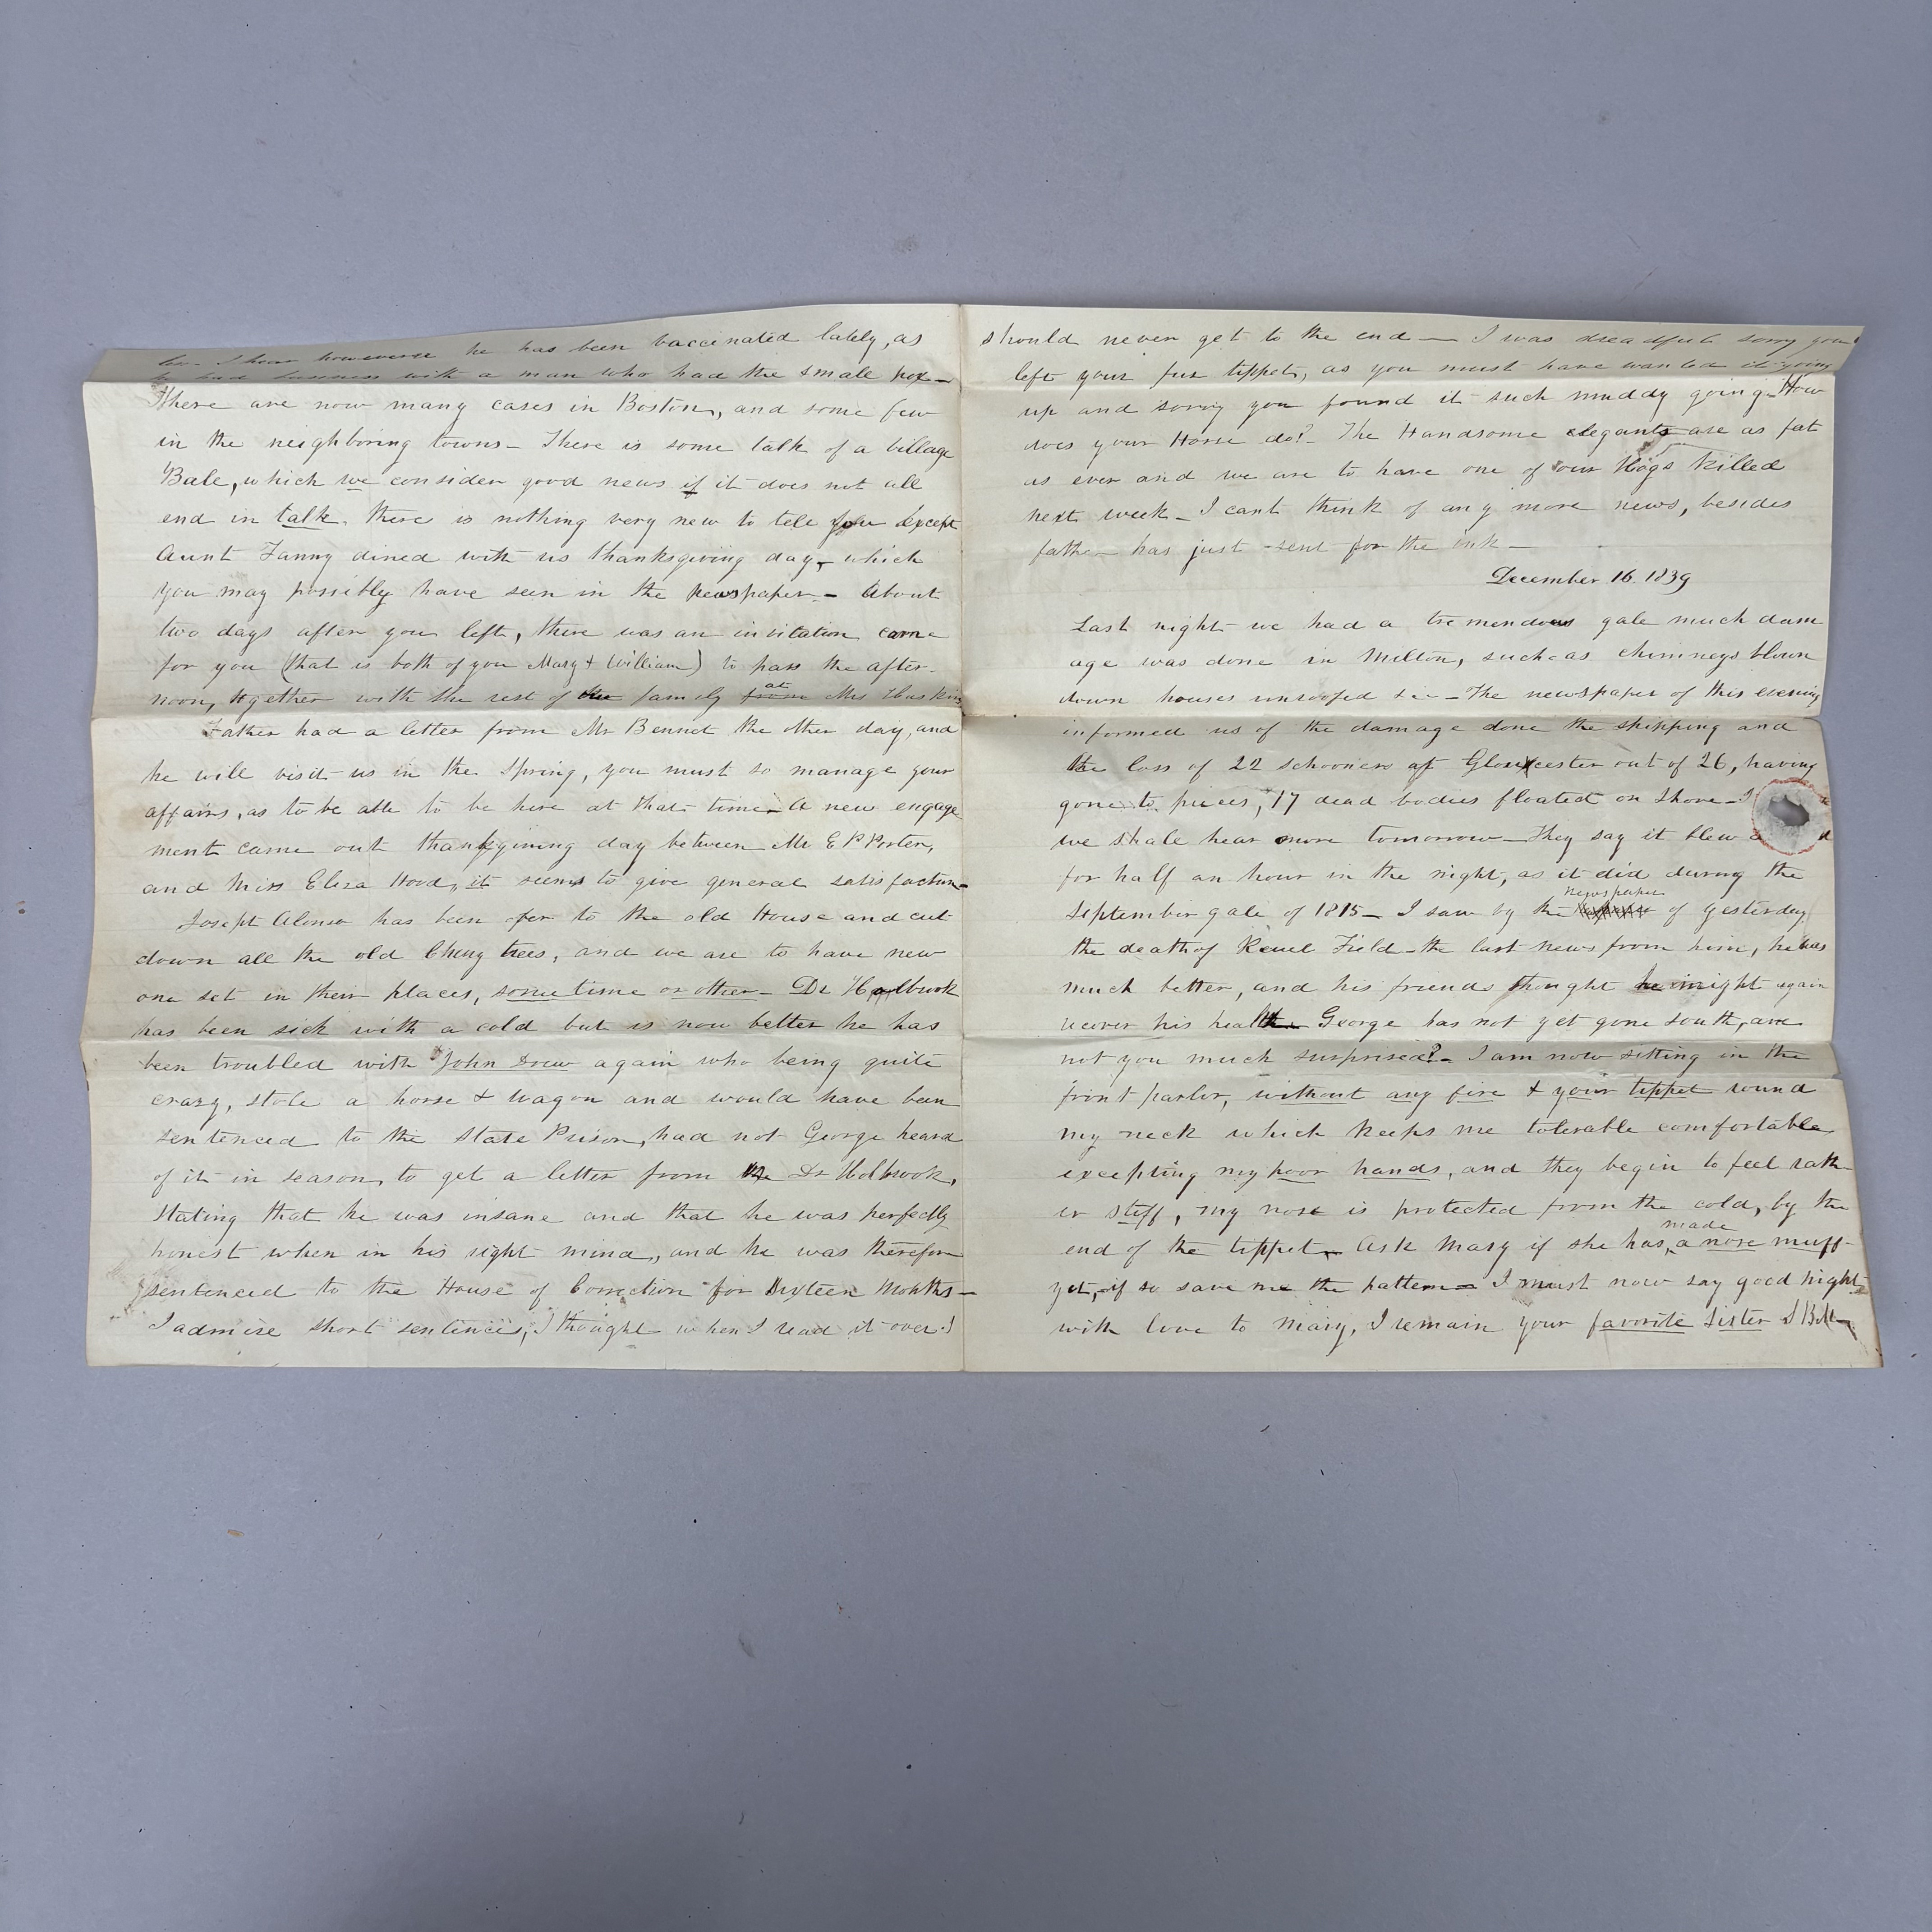 I hear however he has been vaccinated lately, as
he had business with a man who had the small pox—
There are now many cases in Boston, and some few
in the neighboring towns— There is some talk of a village
Bale, which we consider good news if it does not all
end in talk. there is nothing very new to tell you except
Aunt Fanny dined with us thanksgiving day, which
you may possibly have seen in the newspaper— About
two days after you left, there was an invitation came
for you (that is both of you Mary & William) to pass the after-
noon, together with the rest of the family from at Mrs Haskins
Father had a letter from Mr Bennet the other day, and
he will visit us in the Spring, you must so manage your
affairs, as to be able to be here at that time. A new engage
ment came out thanksgiving day between Mr E P Porter,
and Miss Eliza Hood, it seems to give general satisfaction—
Joseph Alonso has been over to the old House and cut
down all the old Cherry trees, and we are to have new
one set in their places, some time or other— Dr Holbrook
has been sick with a cold but is now better he has
been troubled with John Drew again who being quite
crazy, stole a horse & wagon and would have been
sentenced to the State Prison, had not George heard
of it in season, to get a letter from Dr Holbrook,
Stating that he was insane and that he was perfectly
honest when in his right mind, and he was therefore
sentenced to the House of Correction for Sixteen Months—
I admire short sentences, I thought when I read it over I
should never get to the end— I was dreadful sorry you
left your fur tippet, as you must have wanted it going
up and sorry you found it such muddy going. How
does your Horse do?— The Handsome elegants are as fat
as ever and we are to have one of our Hogs killed
next week— I cant think of any more news, besides
father has just sent for the ink—
December 16. 1839
Last night we had a tremendous gale much dam
age was done in Milton, such as chimneys blown
down houses unroofed &c— The newspaper of this evening
informed us of the damage done the shipping and
the loss of 22 schooners at Gloucester out of 26, having
gone to pieces, 17 dead bodies floated on shore— I
we shall hear more tomorrow— They say it blew a
for half an hour in the night, as it did during the
September gale of 1815— I saw by the newspaper of yesterday
the death of Reuel Field— the last news from him, he was
much better, and his friends thought he might again
recover his health— George has not yet gone south, are
not you much surprised?— I am now sitting in the
front parlor, without any fire & your tippet round
my neck which keeps me tolerable comfortable
excepting my poor hands, and they begin to feel rath
er stiff, my nose is protected from the cold, by the
end of the tippet— Ask Mary if she has made a nose muff
yet, if so save me the pattern— I must now say good night
with love to Mary, I remain your favorite Sister S